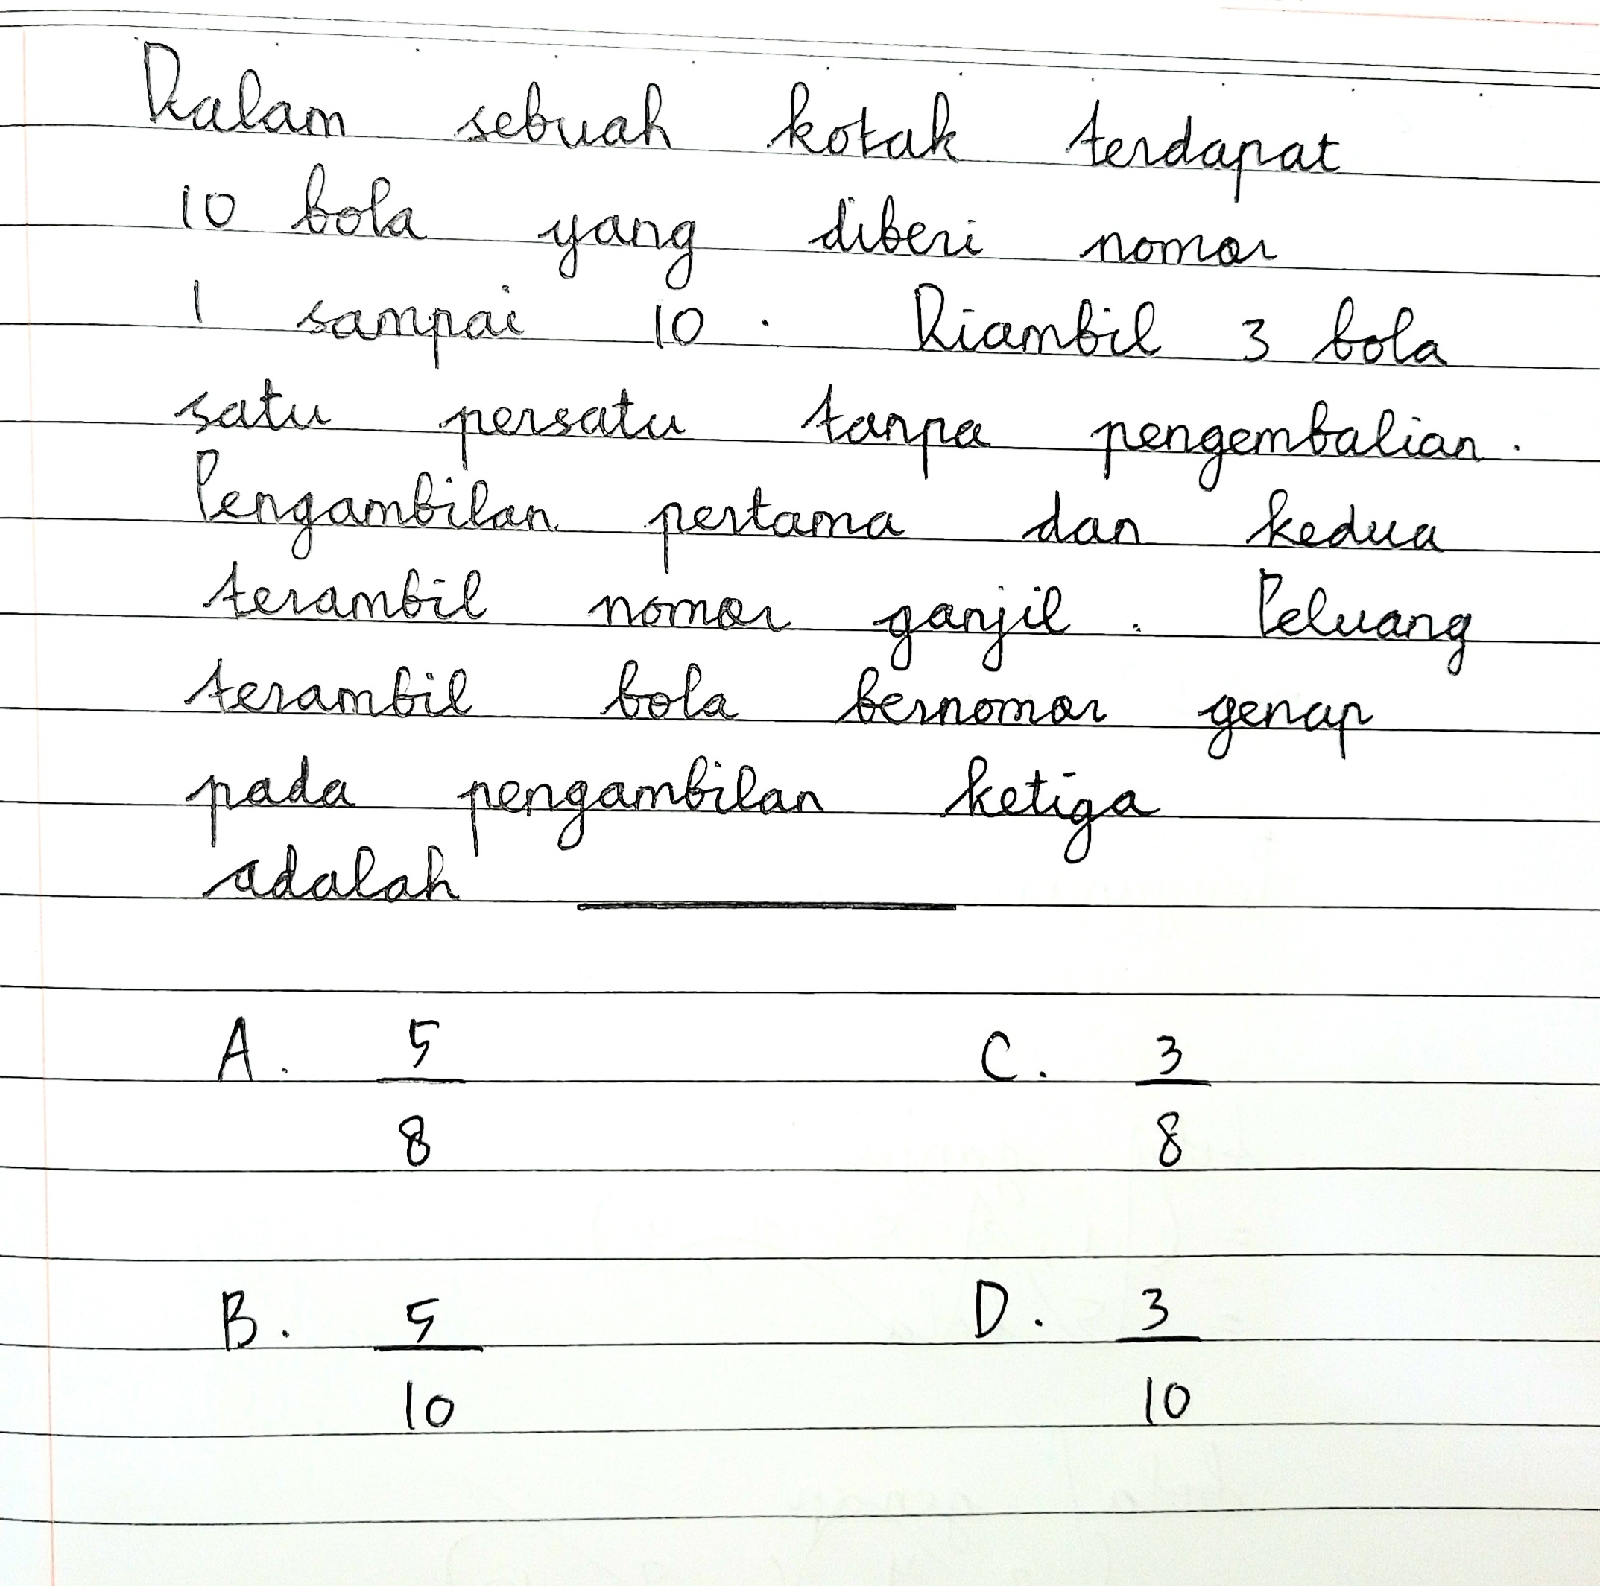 Dalam sebuah kotak terdapat
10 bola yang diberi nomor
1 sampai 10. Diambil 3 bola
satu persatu tanpa pengembalian.
Pengambilan pertama dan kedua
terambil nomor ganjil. Peluang
terambil bola bernomor genap
pada pengambilan ketiga
adalah ______
A. 5/8 C. 3/8
B. 5/10 D. 3/10